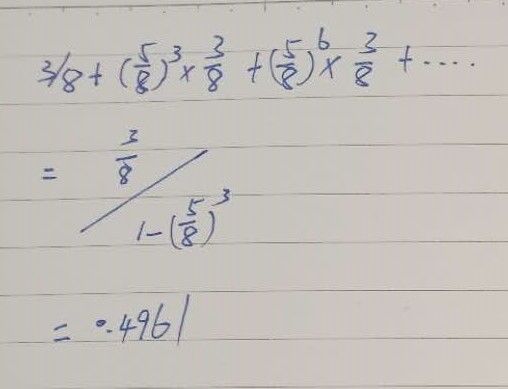 3/8 + (5/8)³ × 3/8 + (5/8)⁶ × 3/8 + ....
= 3/8 / 1 - (5/8)³
= 0.4961